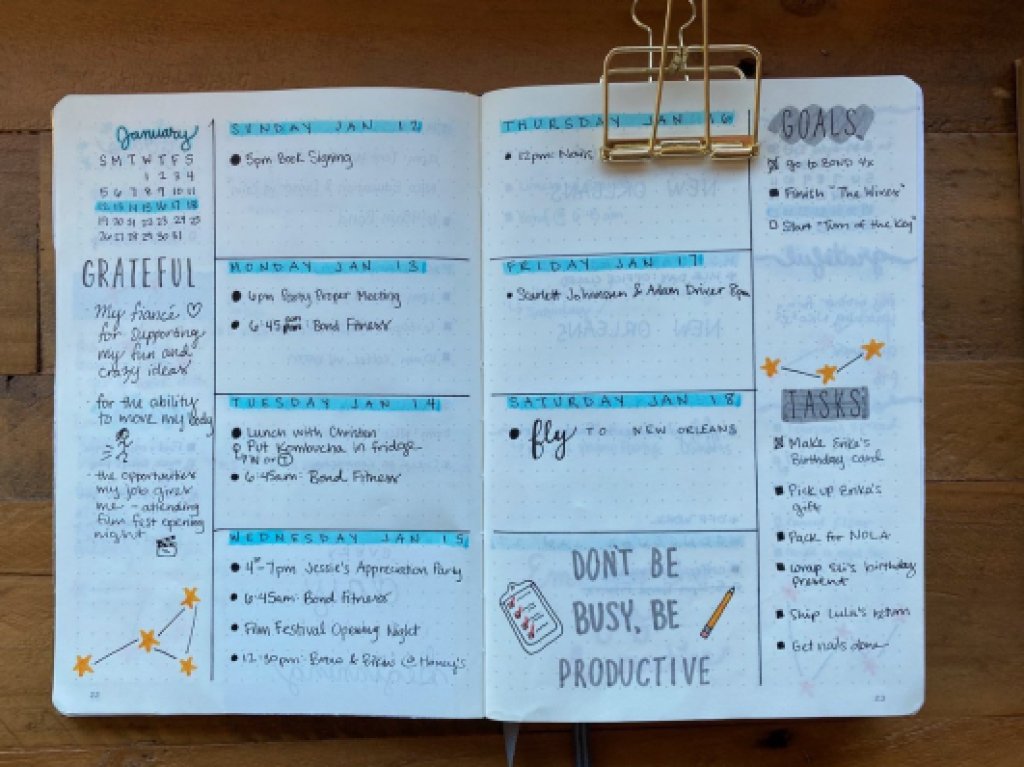 January
S M T W T F S
1 2 3 4
5 6 7 8 9 10 11
12 13 14 15 16 17 18
19 20 21 22 23 24 25
26 27 28 29 30 31
GRATEFUL
My fiancé ♡
for supporting
my fun and
crazy ideas
- for the ability
to move my body
- the opportunities
my job gives
me - attending
film fest opening
night
22
SUNDAY JAN 12
• 5pm Book Signing
MONDAY JAN 13
• 6pm Party Proper Meeting
• 6:45 Bond Fitness
TUESDAY JAN 14
• Lunch with Christen
Put Kombucha in fridge
• 6:45am: Bond Fitness
WEDNESDAY JAN 15
• 4-7pm Jessie's Appreciation Party
• 6:45am: Bond Fitness
• Film Festival Opening Night
• 12:30pm: & @ Honey's
THURSDAY JAN 16
• 12pm: Nails
FRIDAY JAN 17
• Scarlett Johansson & Adam Driver 8pm
SATURDAY JAN 18
• fly TO NEW ORLEANS
DON'T BE
BUSY, BE
PRODUCTIVE
GOALS
go to BOND 4x
Finish "The Wives"
Start "Turn of the Key"
TASKS
Make Erika's
Birthday card
Pick up Erika's
gift
Pack for NOLA
Wrap Eli's birthday
present
Ship Lulu's return
Get nails done
23